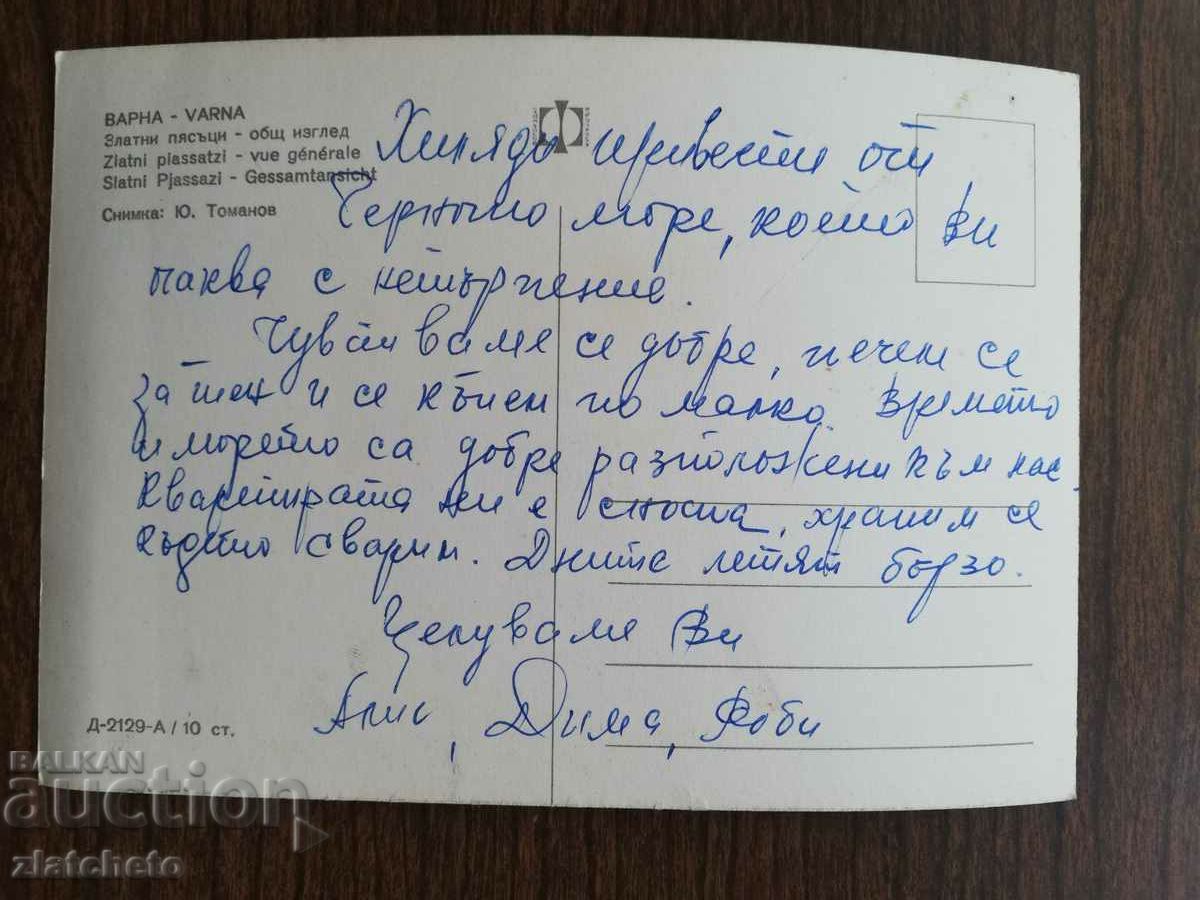 ВАРНА - VARNA
Златни пясъци - общ изглед
Zlatni piassatzi - vue générale
Slatni Pjassazi - Gessamtansicht
Снимка: Ю. Томанов
Хиляди привети от
Черното море, което Ви
чаква с нетърпение.
Чувстваме се добре, печем се
за тен и се къпем по малко. Времето
и морето са добре разположени към нас.
Квартирата ни е сносна, храним се
където сварим. Дните летят бързо.
Целуваме Ви
Дима, Роби
Д-2129-А / 10 ст.
BALKAN
auction
zlatcheto